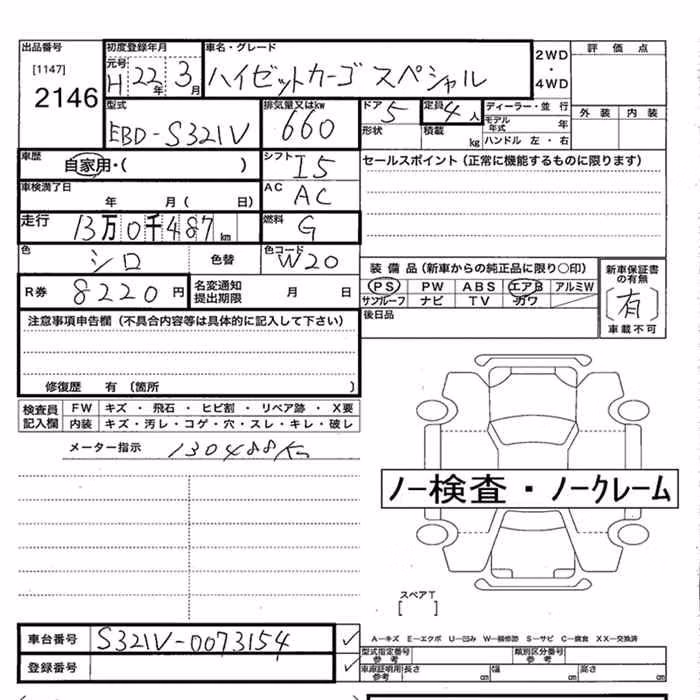 出品番号 初度登録年月 車名・グレード 2WD・4WD 評価点
[1147] 元号 H 22年 3月 ハイゼットカーゴ スペシャル
2146 外装 内装
型式 排気量又はkw ドア 5 定員 4人 ディーラー・並行
EBD-S321V 660 形状 積載 kg モデル年式 年
ハンドル 左・右
車歴 自家用・( ) シフト I5 セールスポイント(正常に機能するものに限ります)
車検満了日 年 月( 日) AC AC
走行 13万0千487km 燃料 G
色 シロ 色替 色コード W20
装備品(新車からの純正品に限り○印) 新車保証書の有無
R券 8220円 名変通知提出期限 月 日 PS PW ABS エアB アルミW (有)
サンルーフ ナビ TV カワ 車載不可
注意事項申告欄(不具合内容等は具体的に記入して下さい) 後日品
修復歴 有(箇所 )
検査員記入欄 FW キズ・飛石・ヒビ割・リペア跡・X要
内装 キズ・汚レ・コゲ・穴・スレ・キレ・破レ
メーター指示 130488Km
ノー検査・ノークレーム
スペアT
[ ]
車台番号 S321V-0073154 ✓ A—キズ E—エクボ U—凹み W—補修跡 S—サビ C—腐食 XX—交換済
型式指定番号 参考 類別区分番号 参考
登録番号 ✓ 車庫証明用参考 長さ cm 幅 cm 高さ cm